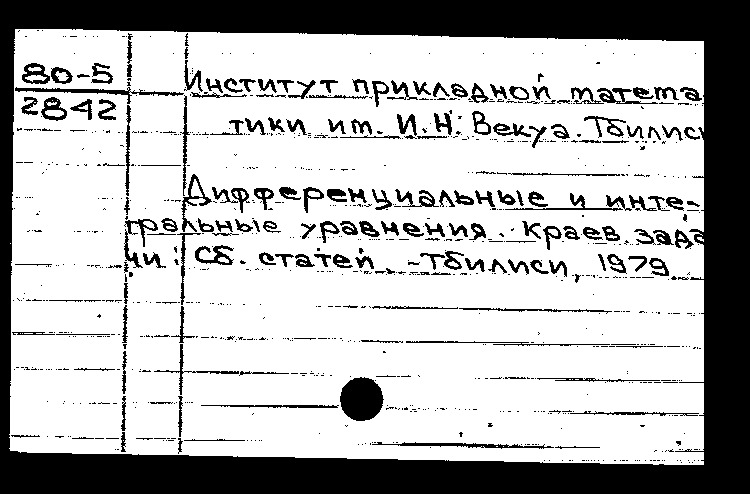 80-5
2842
Институт прикладной матема
тики им. И.Н. Векуа. Тбилиси
Дифференциальные и инте-
гральные уравнения. Краев. зада
чи: Сб. статей. -Тбилиси, 1979.